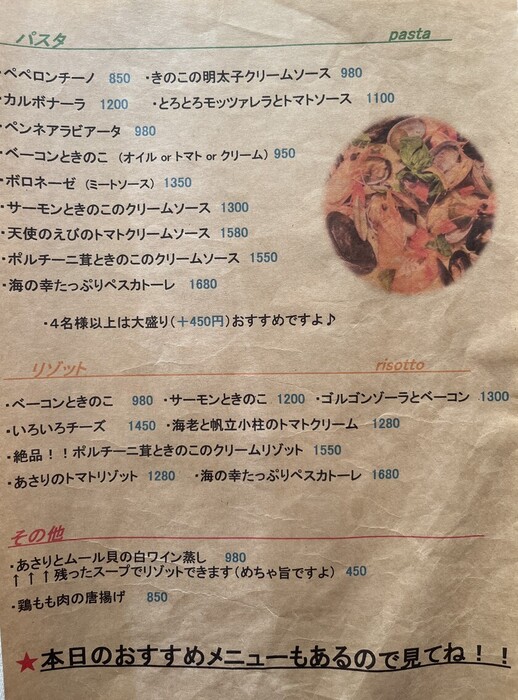 パスタ pasta
・ペペロンチーノ 850 ・きのこの明太子クリームソース 980
・カルボナーラ 1200 ・とろとろモッツァレラとトマトソース 1100
・ペンネアラビアータ 980
・ベーコンときのこ （オイル or トマト or クリーム）950
・ボロネーゼ（ミートソース）1350
・サーモンときのこのクリームソース 1300
・天使のえびのトマトクリームソース 1580
・ポルチーニ茸ときのこのクリームソース 1550
・海の幸たっぷりペスカトーレ 1680
・４名様以上は大盛り（＋450円）おすすめですよ♪
リゾット risotto
・ベーコンときのこ 980 ・サーモンときのこ 1200 ・ゴルゴンゾーラとベーコン 1300
・いろいろチーズ 1450 ・海老と帆立小柱のトマトクリーム 1280
・絶品！！ポルチーニ茸ときのこのクリームリゾット 1550
・あさりのトマトリゾット 1280 ・海の幸たっぷりペスカトーレ 1680
その他
・あさりとムール貝の白ワイン蒸し 980
↑↑↑残ったスープでリゾットできます（めちゃ旨ですよ） 450
・鶏もも肉の唐揚げ 850
★本日のおすすめメニューもあるので見てね！！